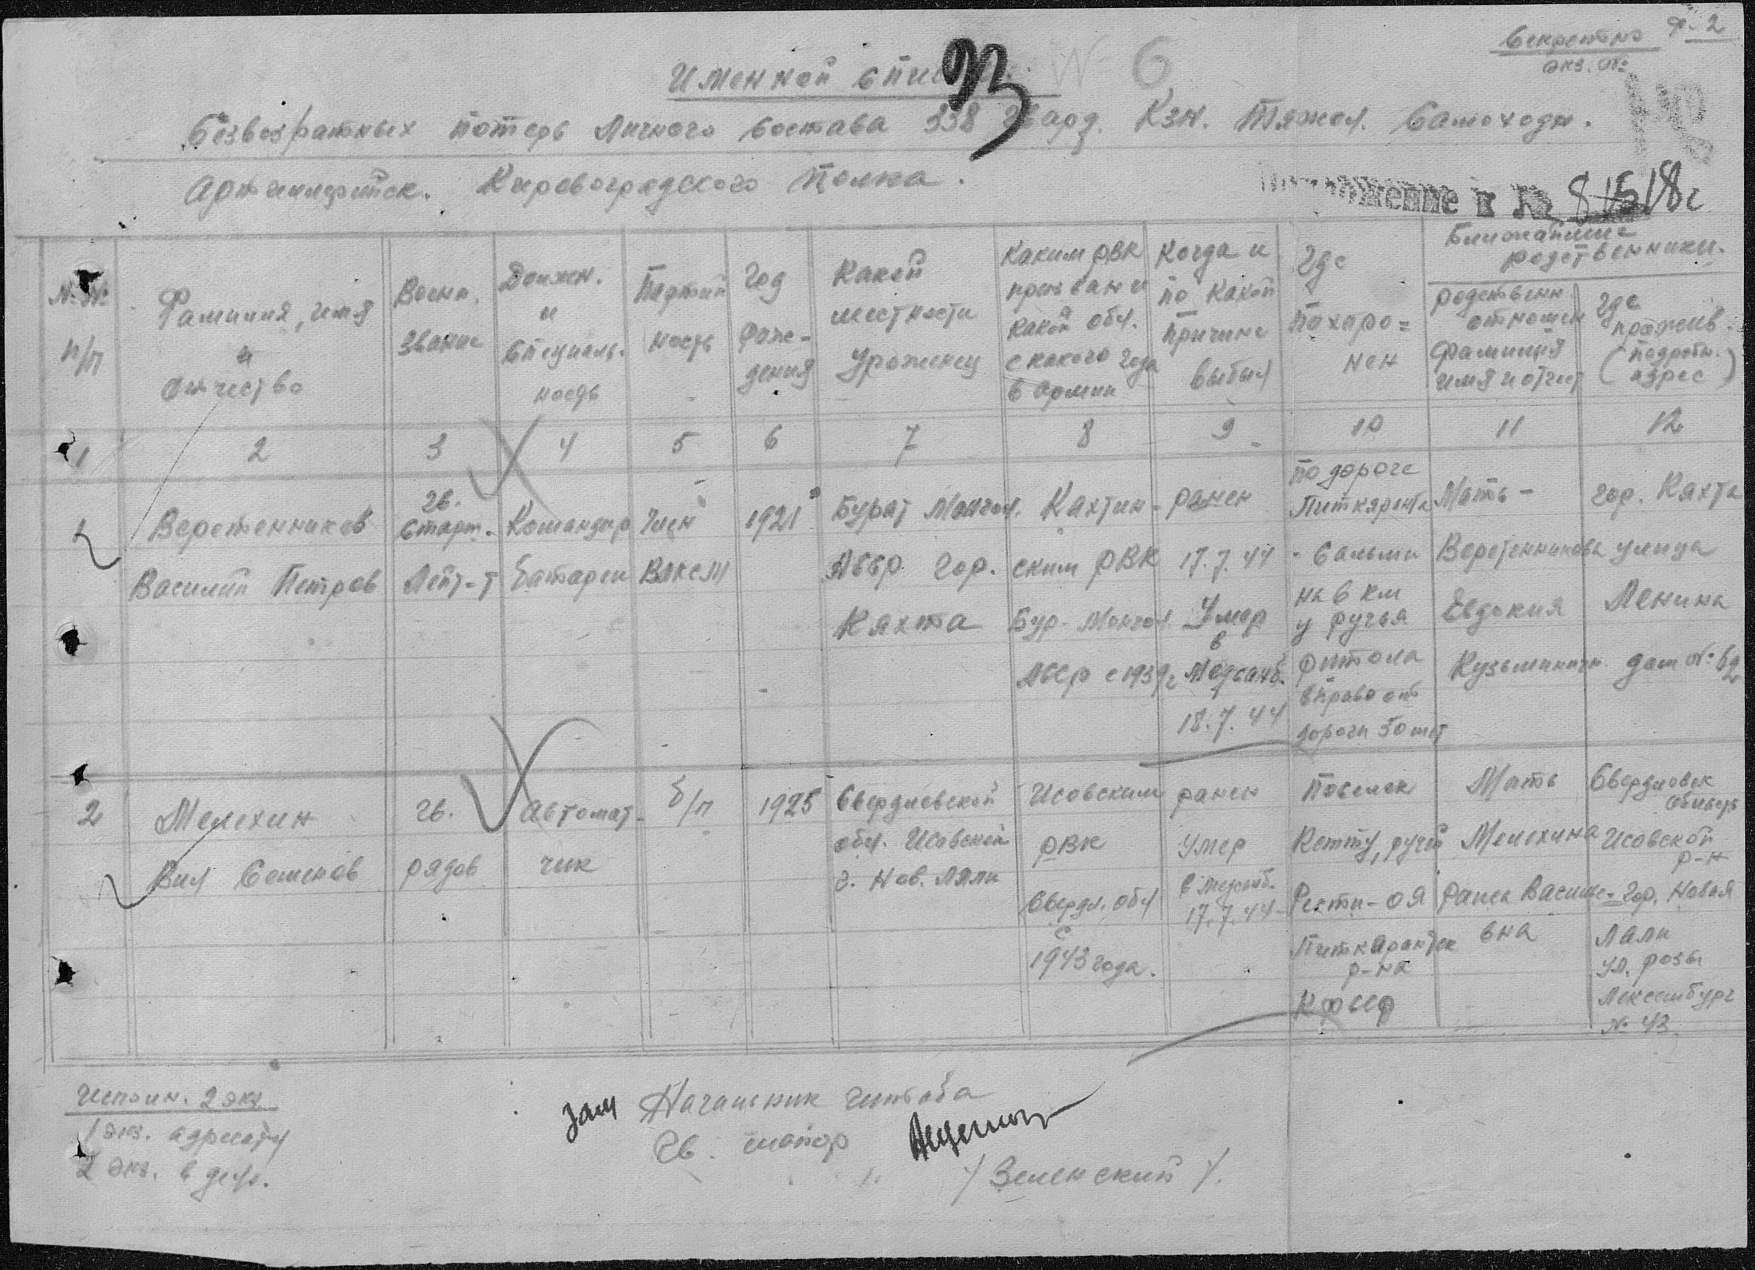 Секретно Ф-2
экз. №
Именной список № 6
93
безвозвратных потерь личного состава 338 Гвард. Кзн. Тяжел. Самоходн.
Артиллерийск. Кировоградского полка.
Приложение к № 81518с
№№ п/п
Фамилия, имя и отчество
Воен. звание
Должн. и специаль- ность
Партий ность
Год рож- дения
Какой местности уроженец
Каким РВК призван и какой обл. с какого года в армии
Когда и по какой причине выбыл
Где похоро= нен
Ближайшие родственники.
родственн отношен фамилия имя и отчест
где прожив. (подробн. адрес)
1 2 3 4 5 6 7 8 9 10 11 12
1
Веретенников
Василий Петров
гв.
Старт.
Лейт-т
Командир
батареи
Член
ВЛКСМ
1921
Бурат Монгол.
АССР гор.
Кяхта
Кяхтин-
ским РВК
Бур-Монгол
АССР с 1939г
ранен
17.7.44
Умер
в
Медсанб.
18.7.44
По дороге
Питкяранта
- Сальми
на 6 км
у ручья
вправо от
дороги 50 мет
Мать -
Веретенникова
Евдокия
Кузьминичн.
гор. Кяхта
улица
Ленина
дом №
2
Мелехин
Вил Семенов
гв.
рядов
Автомат-
чик
б/п
1925
Свердловской
обл. Исовской
г. Нов. Ляли
Исовским
РВК
Свердл. обл
с
1943 года.
ранен
умер
в медсанб.
17.7.44
Поселок
Кетту, ручей
Питкярантск
р-на
КФССР
Мать
Мелехина
Раиса Василье-
вна
Свердловск
область
Исовской
р-н
гор. Новая
Ляля
ул. Розы
Люксембург
№ 43
Исполн. 2 экз
1 экз. адресату
2 экз. в дело.
зам Начальник штаба
Гв. майор
/Зеленский/.